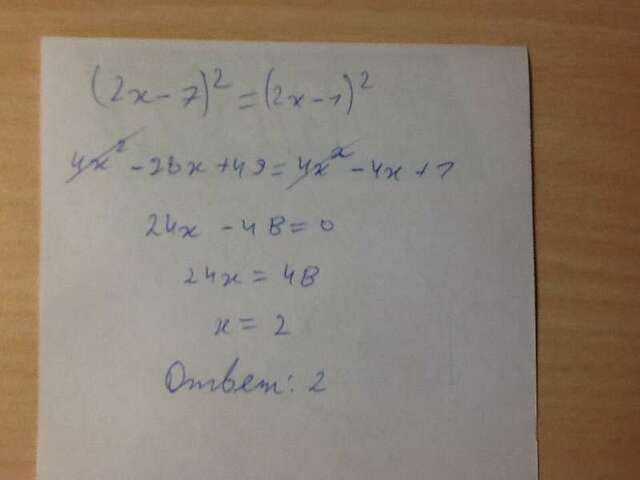 (2x-7)² = (2x-1)²
4x² - 28x + 49 = 4x² - 4x + 1
24x - 48 = 0
24x = 48
x = 2
Ответ: 2